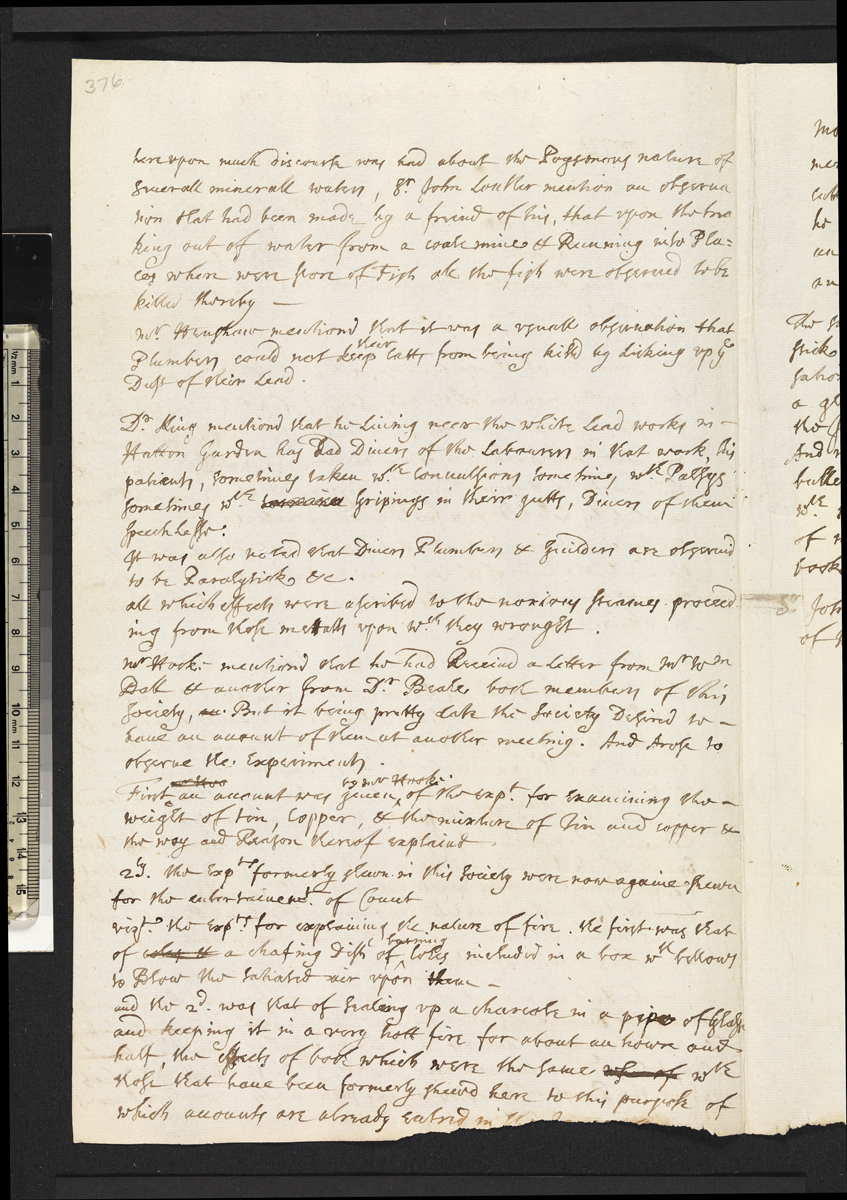 376.
hereupon much discourse was had about the Poysonous nature of
severall minerall waters, Sr. John Lowther mention an observa
tion that had been made by a freind of his, that upon the brea
king out of water from a coale mine & Running into Pla=
ces where were store of Fish all the fish were observed to be
killed thereby —
mr. Henshaw mentiond that it was a usuall observation that
Plumbers could not keep their catts from being killd by licking up ye
Dust of their Lead.
Dr. King mentiond that he Living neer the white Lead works in —
Hatton Garden has had Divers of the Labourers in that work, his
patients, sometimes taken wth convultions sometimes wth Palsys
sometimes wth Gripings in their gutts, Divers of them
speechlesse.
It was also noted that Divers Plumbers & Guilders are observd
to be Paralytick, &c.
all which effects were ascribed to the noxious steames proceed
ing from those mettalls upon wch they wrought.
mr Hook mentiond that he had Receivd a Letter from mr Wm
Dall & another from Dr. Beale both members of this
Society, But it being pretty late the Society Desired to —
have an account of them at another meeting. And Arose to
observe the Experiments.
by mr Hooke
First an account was given of the Expt. for Examining the —
weight of tin, Copper, & the mixture of tin and copper &
the way and Reason thereof explaind.
2ly. the Expts formerly shewn in this Society were now againe shewn
for the entertainemt. of Count
vizt. the Expts for explaining the nature of fire. the first was that
of a chafing Dish of burning Coles included in a box wth bellows
to Blow the satiated air upon them —
and the 2d. was that of sealing up a charcole in a pipe of Glasse
and keeping it in a very hott fire for about an howre and
half, the effects of both which were the same wth
those that have been formerly shewd here to this purpose of
which accounts are already entred in the
Mo
he
an
The
a gl
the
And
butte
wth
of
book
3. Joh
of